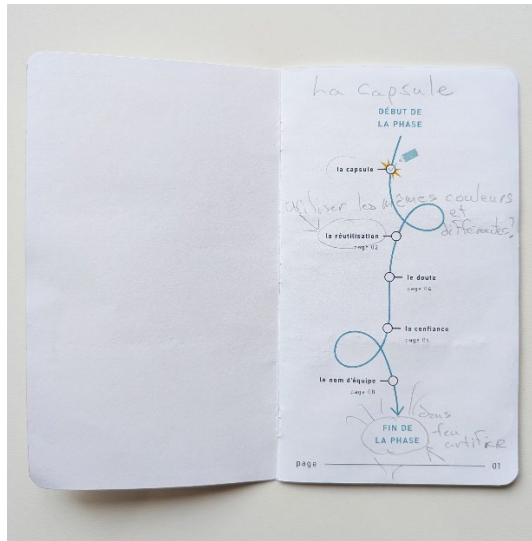 La capsule
DÉBUT DE
LA PHASE
la capsule
utiliser les mêmes couleurs
et
différentes?
la réutilisation
page 02
le doute
page 04
la confiance
le nom d'équipe
page 08
dans
feu
artifice
FIN DE
LA PHASE
page 01